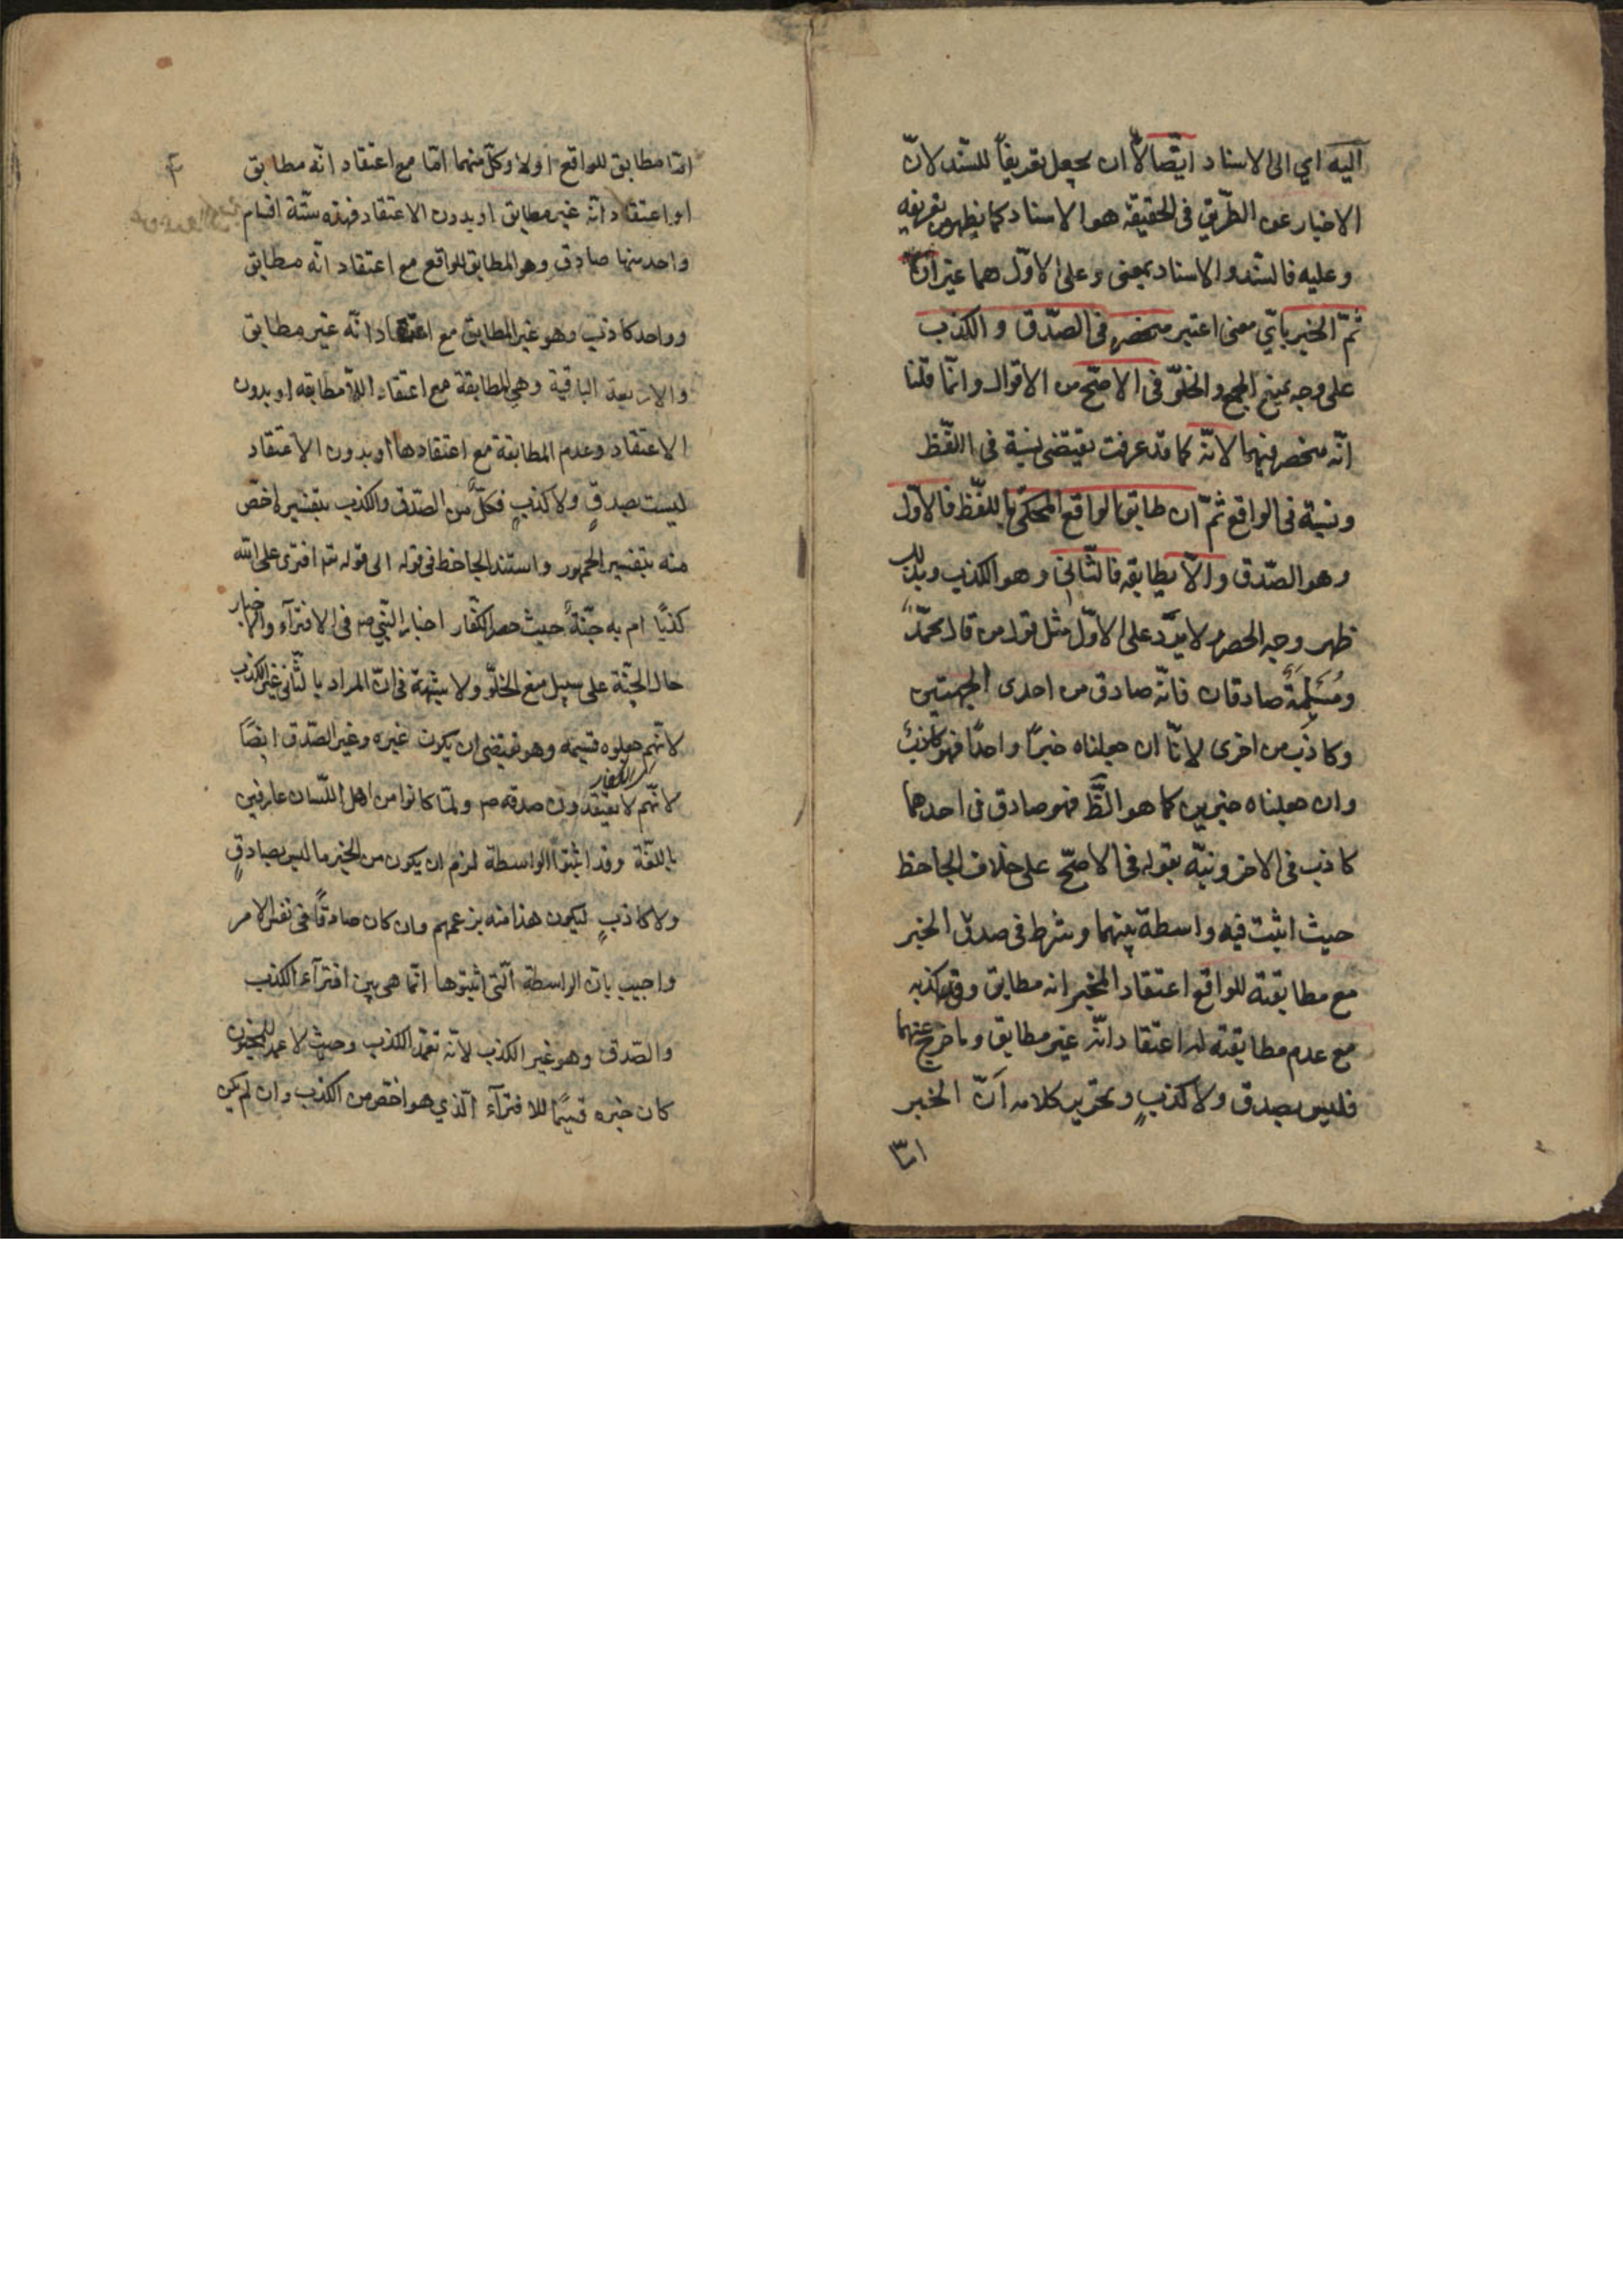 اليه اي الى الاسناد ايضا الا ان يجعل تعريفاً للسند لانّ
الاخبار عن الطريق في الحقيقة هو الاسناد كما يظهر من تعريفه
وعليه فالسّند والاسناد بمعنى وعلى الاوّل هما غيران
ثمّ الخبر بايّ معنى اعتبر منحصر في الصّدق والكذب
على وجه يمنع الجمع والخلوّ في الاصحّ من الاقوال وانّما قلنا
انّه منحصر فيهما لانّه كما قد عرفت يقتضي نسبة في اللّفظ
ونسبة في الواقع ثمّ ان طابق الواقع المحكى باللّفظ فالاوّل
وهو الصّدق والّا يطابقه فالثّاني وهو الكذب وبذلك
ظهر وجه الحصر ولا يرد على الاوّل مثل قول من قال محمّدٌ
ومُسَيلَمَةٌ صادقان فانّه صادق من احدى الجهتين
وكاذب من اخرى لانّا ان جعلناه خبرًا واحدًا فهو كاذبٌ
وان جعلناه خبرين كما هو الظّ فهو صادق في احدهما
كاذب في الاخر ونبّه بقوله في الاصحّ على خلاف الجاحظ
حيث اثبت فيه واسطة بينهما وشرط في صدق الخبر
مع مطابقته للواقع اعتقاد المخبر انه مطابق وفي كذبه
مع عدم مطابقته له اعتقاد انّه غير مطابق وما خرج عنهما
فليس بصدق ولا كذبٍ وتحرير كلامه أنّ الخبر
امّا
امّا مطابق للواقع اولا وكلّ منهما امّا مع اعتقاد انّه مطابق
او اعتقاد انّه غير مطابق او بدون الاعتقاد فهذه ستّة اقسام
واحد منها صادق وهو المطابق للواقع مع اعتقاد انّه مطابق
وواحد كاذب وهو غير المطابق مع اعتقاد انّه غير مطابق
والاربعة الباقية وهي المطابقة مع اعتقاد اللّامطابقه او بدون
الاعتقاد وعدم المطابقة مع اعتقادها او بدون الاعتقاد
ليست بصدقٍ ولا كذبٍ فكلٌّ من الصّدق والكذب بتفسيره اخصّ
منه بتفسير الجمهور واستند الجاحظ في قوله الى قوله تعم افترى على الله
كذبًا ام به جنّةٌ حيث حصر الكفّار اخبار النّبي ص في الافترآء واخبار
حال الجنّة على سبيل منع الخلوّ ولا شبهة في انّ المراد بالثّاني غير الكذب
لانّهم جعلوه قسيمه وهو يقتضي ان يكون غيره وغير الصّدق ايضًا
اى الكفار
لانّهم لا يعتقدون صدقه ص ولمّا كانوا من اهل اللّسان عارفين
باللّغة وقد اثبتوا الواسطة لزم ان يكون من الخبر ما ليس بصادقٍ
ولا كاذبٍ ليكون هذا منه بزعمهم وان كان صادقًا في نفس الامر
واجيب بانّ الواسطة الّتي اثبتوها انّما هي بين افترآء الكذب
والصّدق وهو غير الكذب لأنّه تعمّد الكذب وحيث لا عمد للمجنون
كان خبره قسيمًا للافترآء الّذي هو اخصّ من الكذب وان لم يكن